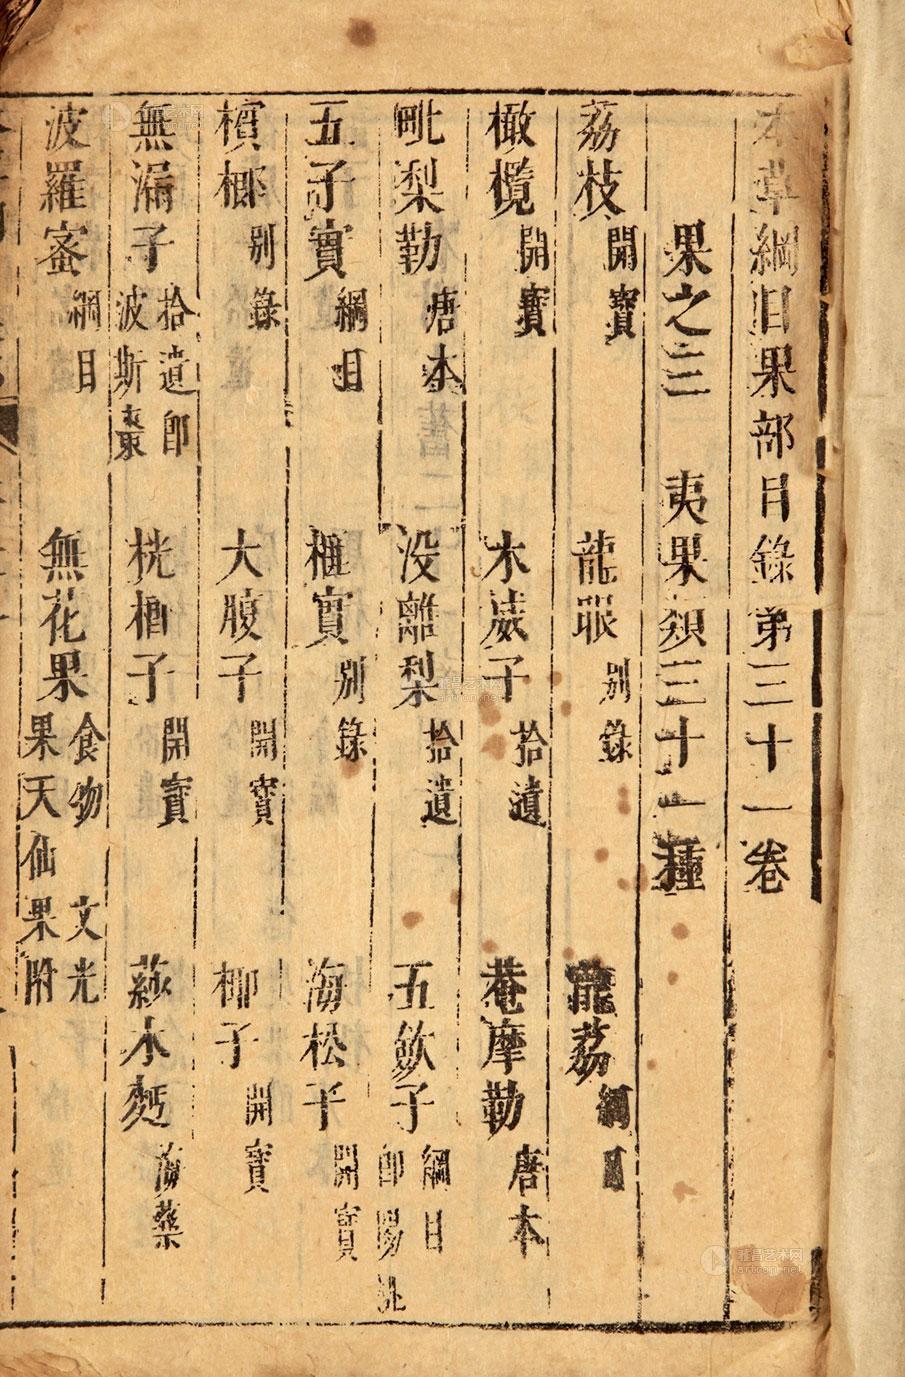 本草綱目果部目錄第三十一卷
果之三 夷果類三十一種
荔枝 開寶 龍眼 别錄 龍荔 綱目
橄欖 開寶 木威子 拾遺 菴摩勒 唐本
毗梨勒 唐本 没離梨 拾遺 五歛子 綱目 即陽桃
五子實 綱目 榧實 别錄 海松子 開寶
檳榔 别錄 大腹子 開寶 椰子 開寶
無漏子 拾遺即波斯棗 桄榔子 開寶 莎木麪 海藥
波羅蜜 綱目 無花果 食物 文光果天仙果附